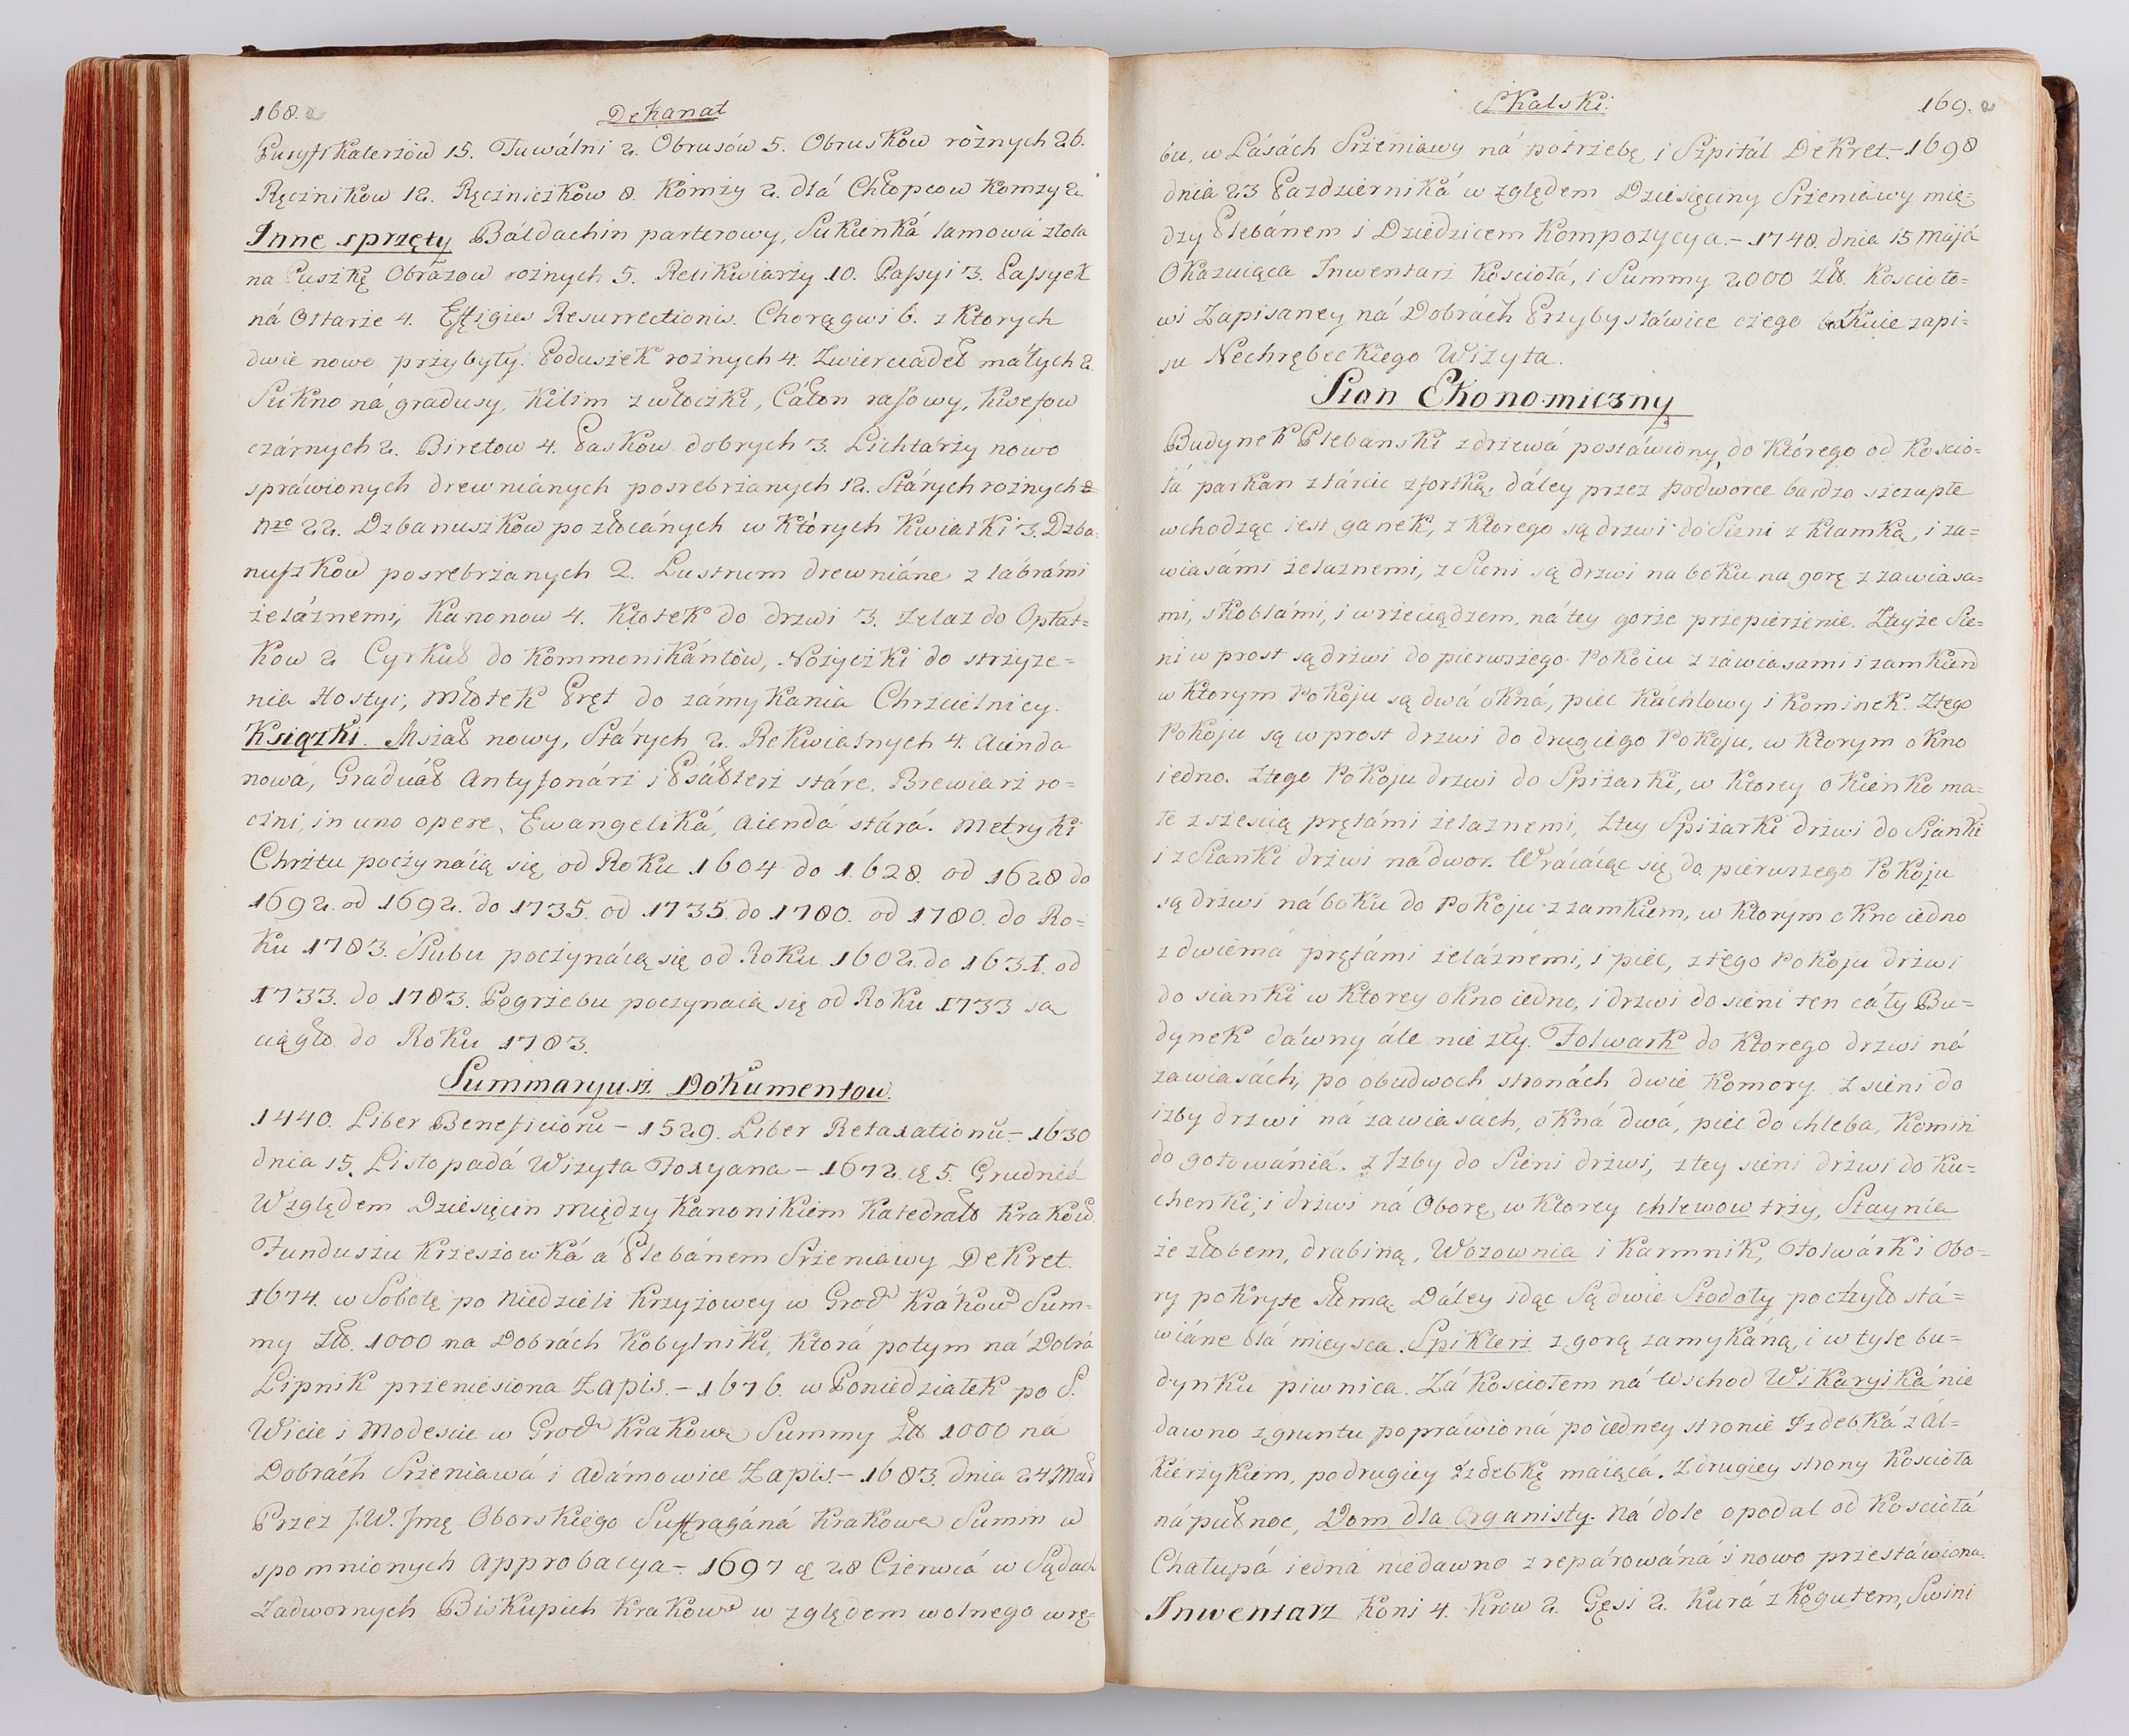 168.
Dekanat
Puryfikaterzow 15. Tuwálni 2. Obrusów 5. Obrusków rożnych 26.
Ręcznikow 12. Ręczniczków 8. Komży 2. dlá Chłopcow Komży 2.
Inne sprzęty Báldachin parterowy, Sukienká lamowá złota
na Puszkę Obrazow rożnych 5. Relikwiarzy 10. Passyi 3. Passyek
ná Ołtarze 4. Effigies Resurrectionis. Chorągwi 6. z ktorych
dwie nowe przybyły. Poduszek rożnych 4. Zwierciádeł máłych 2.
Sukno ná gradusy, Kilim z włoczki, Cáłon rasowy, Kwefow
czárnych 2. Biretow 4. Pasków dobrych 3. Lichtarzy nowo
spráwionych drewniánych posrebrzanych 12. Stárych rożnych
Nro 22. Dzbanuszków pozłocánych w których Kwiatki 3. Dzba-
nuszków posrebrzanych 2. Lustrum drewniáne z labrámi
żeláznemi, Kanonow 4. Kłotek do drzwi 3. Zelaz do Opłat=
kow 2 Cyrkuł do Kommonikántów, Nożyczki do strzyże=
nia Hostyi, Młotek Pręt do zámykania Chrzcielnicy.
Książki. Mszał nowy, Stárych 2. Rekwialnych 4. Aienda
nowá, Gráduáł Antyfonárz i Psáłterz stáre. Brewiarz ro=
czni, in uno opere, Ewangeliká, Aiendá stárá. Metryki
Chrztu poczynáią się od Roku 1604 do 1628. od 1628 do
1692. od 1692. do 1735. od 1735. do 1780. od 1780. do Ro=
ku 1783. Slubu poczynáią się od Roku 1602. do 1631. od
1733. do 1783. Pogrzebu poczynaią się od Roku 1733 są
ciągło do Roku 1783.
Summaryusz Dokumentow.
1440. Liber Beneficiorū – 1529. Liber Retaxationū – 1630
dnia 15. Listopadá Wizyta Foxyana – 1672. d 5. Grudniá
Względem Dziesięcin między Kanonikiem Katedrał Krakow.
Funduszu Krzeszowká a Plebánem Srzeniawy Dekret.
1674. w Sobotę po Niedzieli Krzyżowey w Grod Krákow Sum-
my Zł. 1000 na Dobrách Kobylniki, ktorá potym ná Dobra
Lipnik przeniesiona Zapis. – 1676. w Poniedziałek po S.
Wicie i Modescie w Grod Krakow Summy Zł 1000 ná
Dobrách Srzeniawá i Adámowice Zapis. – 1683. dnia 24 Máá
Przez J.W. Jmę Oborskiego Suffragáná Krakow Summ w
spomnionych Approbacya – 1697 d 28 Czerwcá w Sądach
Zadwornych Biskupich Krakow względem wolnego wrę=
Skalski.
169.
bu, w Lásách Srzeniawy ná potrzebę i Szpitál Dekret. – 1698
dnia 23 Pazdzierniká względem Dziesięciny Srzeniáwy mię=
dzy Plebánem i Dziedzicem Kompozycya. – 1748. dnia 15 Májá
Okazuiąca Inwentarz Kosciołá, i Summy 2000 Zł. Koscioło=
wi Zapisaney ná Dobrách Przybysłáwice czego brákuie zapi=
su Nechrębeckiego Wizyta.
Stan Ekonomiczny
Budynek Plebanski z drzewá postáwiony, do którego od Koscio=
łá parkan z tárcic z fortką, dáley przez podworce bardzo szczupłe
wchodząc iest ganek, z ktorego są drzwi do Sieni z klamką, i za=
wiasámi żelaznemi, z Sieni są drzwi na boku na gorę z zawiasa=
mi, skoblámi, i wrzeciądzem, ná tey gorze przepierzenie. Zteyże Sie=
ni w prost są drzwi do pierwszego Pokoiu z záwiasami i zamkiem
w ktorym Pokoju są dwá okná, piec káchlowy i kominek. Ztego
Pokoju są w prost drzwi do drugiego Pokoju, w ktorym okno
iedno. Ztego Pokoju drzwi do Spiżarki, w ktorey okienko ma=
łe z szescią prętámi żelaznemi, Ztey Spiżarki drzwi do Sianki
i z Sianki drzwi ná dwor. Wrácáiąc się do pierwszego Pokoju
są drzwi ná boku do Pokoju z zamkiem, w ktorym okno iedno
z dwiemá prętámi żeláznemi, i piec, z tego Pokoju drzwi
do sianki w ktorey okno iedno, i drzwi do sieni ten cáły Bu=
dynek dáwny ále nie zły. Folwark do ktorego drzwi ná
zawiasách, po obudwoch stronách dwie Komory z sieni do
izby drzwi ná zawiasách, okná dwá, piec do chleba, Komin
do gotowániá. z Izby do Sieni drzwi, z tey sieni drzwi do Ku=
chenki, i drzwi ná Oborę, w ktorey chlewow trzy, Stáynia
ze złobem, drabiną, Wozownia i Karmnik, Folwárk i Obo=
ry pokryte słomą. Dáley idąc Są dwie Stodoły poczyło stá=
wiáne dlá mieysca. Spiklerz z gorą zamykáną, i w tyle bu=
dynku piwnica. Zá Kosciołem ná Wschod Wikaryiká nie
dawno z gruntu popráwioná po iedney stronie Izdebká z ál=
kierzykiem, po drugiey Izdebkę maiącá. Z drugiey strony Kosciołá
ná pułnoc, Dom dla Organisty. Ná dole opodal od Kosciołá
Chałupá iedná niedawno zrepárowáná i nowo przestáwiona.
Inwentarz Koni 4. Krow 2. Gęsi 2. Kurá z Kogutem, Swini